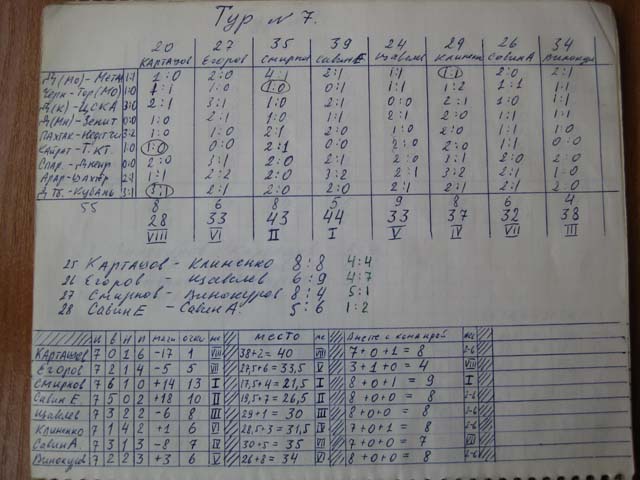 Тур № 7.
20 27 35 39 24 29 26 34
Карташов Егоров Смирнов Савин Е Щавелев Клименко Савин А Винокур
Д(Мо)-Мета 1:1 1:0 2:0 4:1 2:1 1:1 1:1 2:0 2:1
Черн-Тор(Мо) 1:0 7:1 1:0 1:0 0:1 1:1 1:2 1:1 1:1
Д(К)-ЦСКА 3:0 2:1 3:1 1:0 2:1 0:0 2:1 1:0 1:1
Д(Мн)-Зенит 0:0 1:0 2:1 1:0 1:1 2:1 2:0 1:1 1:1
Пахтак-Нефтчи 3:2 1:0 1:0 2:1 2:0 1:0 2:0 1:1 1:0
Кайрат-Т.КТ 1:0 1:0 0:0 2:1 0:0 2:0 2:0 1:1 0:0
Спар.-Днепр 0:0 2:0 3:1 2:0 2:1 2:0 3:1 2:0 2:0
Арар-Шахтёр 2:1 1:1 2:2 2:0 3:2 1:1 3:2 2:1 1:1
Д Тб.-Кубань 3:1 3:1 2:1 2:0 2:0 2:1 2:1 2:1 2:0
55 8 6 8 5 9 8 6 4
28 33 43 44 33 37 32 38
VIII VI II I V IV VII III
25 Карташов - Клименко 8:8 4:4
26 Егоров - Щавелев 6:9 4:7
27 Смирнов - Винокуров 8:4 5:1
28 Савин Е - Савин А. 5:6 1:2
и в н п мячи очки м место м Вместе с командой
Карташов 7 0 1 6 -17 1 VIII 38+2= 40 VIII 7+0+1= 8 2-6
Егоров 7 2 1 4 -5 5 VII 27,5+6= 33,5 V 3+1+0= 4 VIII
Смирнов 7 6 1 0 +14 13 I 17,5+4= 21,5 I 8+0+1= 9 I
Савин Е 7 5 0 2 +18 10 II 19,5+7= 26,5 II 8+0+0= 8 2-6
Щавелев 7 3 2 2 -6 8 III 29+1= 30 III 8+0+0= 8 2-6
Клименко 7 1 4 2 +1 6 VI 28,5+3= 31,5 IV 7+0+1= 8 2-6
Савин А 7 3 1 3 -8 7 IV 30+5= 35 VII 7+0+0= 7 VII
Винокуров 7 2 2 3 +3 6 V 26+8= 34 VI 8+0+0= 8 2-6